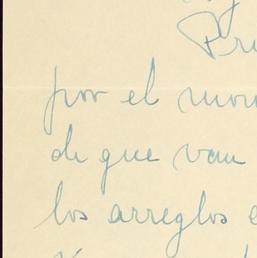 Pri
por el mom
de que van
los arreglos e